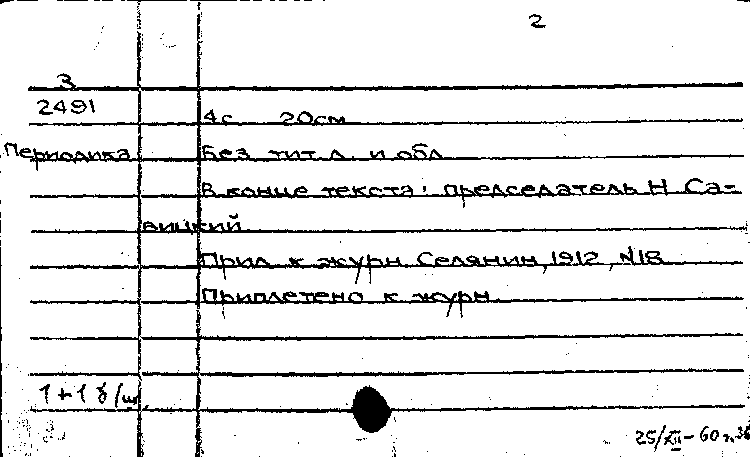 2
З
2491
4с 20см
Периодика Без тит. л. и обл.
В конце текста: председатель Н. Са-
вицкий
Прил. к журн. Селянин, 1912, №18
Приплетено к журн.
1+1 б/ш
25/XII-60 г.